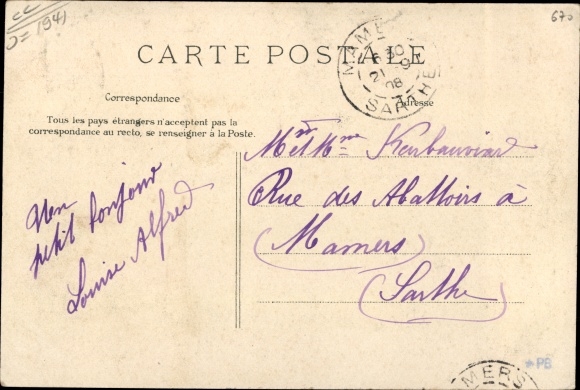 CARTE POSTALE
Correspondance
Tous les pays étrangers n'acceptent pas la
correspondance au recto, se renseigner à la Poste.
Adresse
MAMERS
6 30
21 -9
08
SARTHE
Un
petit bonjour
Louise Alfred
Mr et Mme
Rue des Abattoirs à
Mamers
Sarthe
670
*PB
MERS